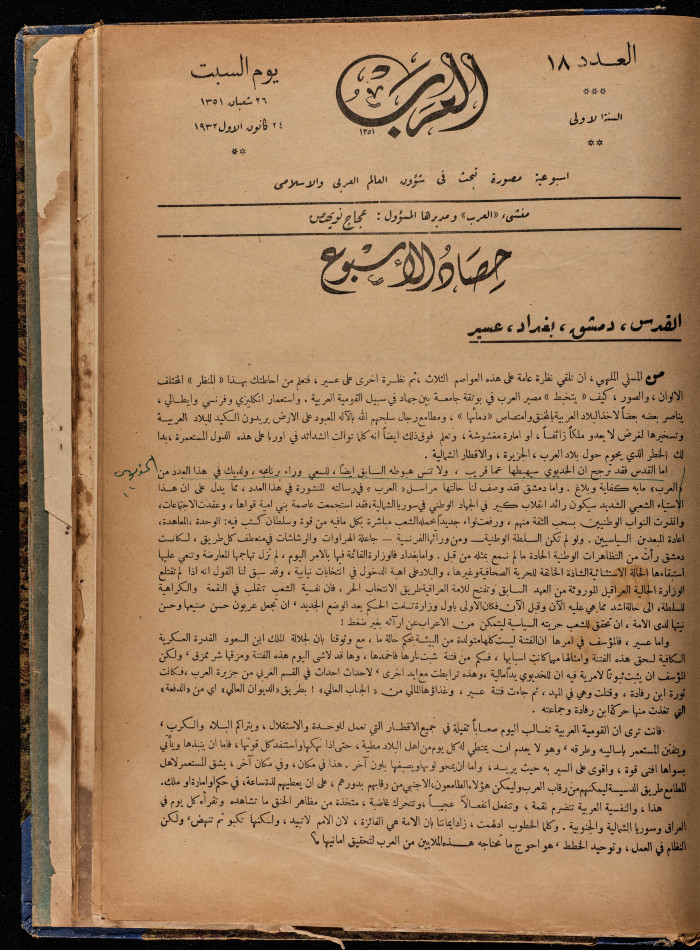 العدد ١٨
***
السنة الاولى
**
العرب
١٣٥١
يوم السبت
٢٦ شعبان ١٣٥١
٢٤ كانون الاول ١٩٣٢
**
اسبوعية مصورة تبحث فى شؤون العالم العربى والاسلامى
منشىء «العرب» ومديرها المسؤول : عجاج نويهض
حصاد الأسبوع
القدس ، دمشق ، بغداد ، عسير
من المسلي الملهي ، ان نلقي نظرة عامة على هذه العواصم الثلاث ،ثم نظرة اخرى على عسير ، فنعلم من احاطتك بهذا « المنظر » المختلف
الالوان ، والصور ، كيف « يتخبط » مصير العرب في بوتقة جامعة بين جهاد في سبيل القومية العربية . واستعمار انكليزي وفرنسي وايطالي ،
يناصر بعضه بعضاً لاخذ البلاد العربية بالخنق وامتصاص «دمائها» ، ومطامع رجال سلحهم الله بالآله المعبود على الارض يريدون الكيد للبلاد العربية
وتسخيرها لغرض لا يعدو ملكاً زائفاً ، او امارة مغشوشة ، وتعلم فوق ذلك ايضاً انه كما توالت الشدائد في اوربا على هذه الدول المستعمرة ، بدا
لك الخطر الذي يحوم حول بلاد العرب ، الجزيرة ، والاقطار الشمالية .
اما القدس فقد ترجح ان الخديوي سيهبطها عما قريب ، ولا تنس هبوطه السابق ايضاً ، للسعي وراء برنامجه ، ولديك في هذا العدد من
«العرب» مابه كفاية وبلاغ . واما دمشق فقد وصف لنا حالتها مراسل « العرب » في رسالته المنشورة في هذا العدد ، مما يدل على ان هذا
الاستياء الشعبي الشديد سيكون رائد انقلاب كبير في الجهاد الوطني في سوريا الشمالية،فقد استجمعت عاصمة بني امية قواها ، وعقدت الاجتماعات،
وانذرت النواب الوطنيين بسحب الثقة منهم ، ورفعت لواء جديداً يحمله الشعب مباشرة بكل مافيه من قوة وسلطان كتب فيه: الوحدة ،المعاهدة،
اعادة المبعدين السياسيين . ولو لم تكن السلطة الوطنية — ومن ورائها الفرنسية — جاعلة الهراوات والرشاشات في منعطف كل طريق ، لكانت
دمشق رأت من التظاهرات الوطنية الحادة ما لم نسمع بمثله من قبل . واما بغداد فالوزارة القائمة فيها بالامر اليوم ، لم تزل تهاجمها المعارضة وتنعي عليها
استبقاءها الحالة الاستثنائية الشاذة الخانقة للحرية الصحافية وغيرها ، والبلاد على اهبة الدخول في انتخابات نيابية ، وقد سبق لنا القول انه اذا لم تقتلع
الوزارة الحالية العراقيل الموروثة من العهد السابق وتفتح للامة العراقية طريق الانتخاب الحر ، فان نفسية الشعب تنقلب في النقمة والكراهية
للسلطة، الى حالة اشد مما هي عليه الآن وقبل الآن فكان الاولى باول وزارة تسلمت الحكم بعد الوضع الجديد ، ان تجعل عربون حسن صنيعها وحسن
نيتها لدى الامة ، ان تحقق للشعب حريته السياسية ليتمكن من الاعراب عن آرائه بغير ضغط !
واما عسير ، فالمؤسف في امرها ان الفتنة ليست كلها متولدة من البيئة بحكم حالة ما ، مع وثوقنا بان لجلالة الملك ابن السعود القدرة العسكرية
الكافية لسحق هذه الفتنة وامثالها مهما كانت اسبابها ، فكم من فتنة شبت نارها فاخمدها ، وها قد لاشى اليوم هذه الفتنة ومزقها شر ممزق ، ولكن
المؤسف ان يثبت ثبوتاً لامرية فيه ان للخديوي يداً مالية ، وهذه ترابطت مع ايد اخرى ، لاحداث احداث في القسم الغربي من جزيرة العرب ،فكانت
ثورة ابن رفادة ، وقتلت وهي في المهد ، ثم جاءت فتنة عسير ، وغذاؤها المالي من « الجناب العالي» ! بطريق «الديوان العالي» اي من «الدفعة»
التي تغذت منها حركة ابن رفادة وجماعته .
فانت ترى ان القومية العربية تغالب اليوم صعاباً ثقيلة في جميع الاقطار التي تعمل للوحدة والاستقلال ، ويتراكم البلاء والكرب ،
ويتفنن المستعمر باساليبه وطرقه ، وهو لا يعدم ان يمتطي له كل يوم من اهل البلاد مطية ، حتى اذا نهكها واستنفد كل قوتها ، فاما ان ينبذها ويأتي
بسواها افتى قوة ، واقوى على السير به حيث يريد ، واما ان يمحو لونها ويصبغها بلون آخر . هذا في مكان ، وفي مكان آخر ، يشق المستعمر لاهل
المطامع طريق الدسيسة ليمكنهم من رقاب العرب وليمكن هؤلاء الطامعون،الاجنبي من رقابهم بدورهم ، على ان يعطيهم لذة ساعة، في حكم وامارة او ملك.
هذا ، والنفسية العربية تتضرم نقمة ، وتنفعل انفعالاً عجيباً وتتحرك غاضبة ، متخذة من مظاهر الخنق ما تشاهده وتقرأه كل يوم في
العراق وسوريا الشمالية والجنوبية . وكلما الخطوب ادلهمت ، زاد ايماننا بان الامة هي الفائزة ، لان الامم لا تبيد ، ولكنها تكبو ثم تنهض ، ولكن
النظام في العمل ، وتوحيد الخطط ، هو احوج ما تحتاجه هذه الملايين من العرب لتحقيق امانيها ؟
الخديوي